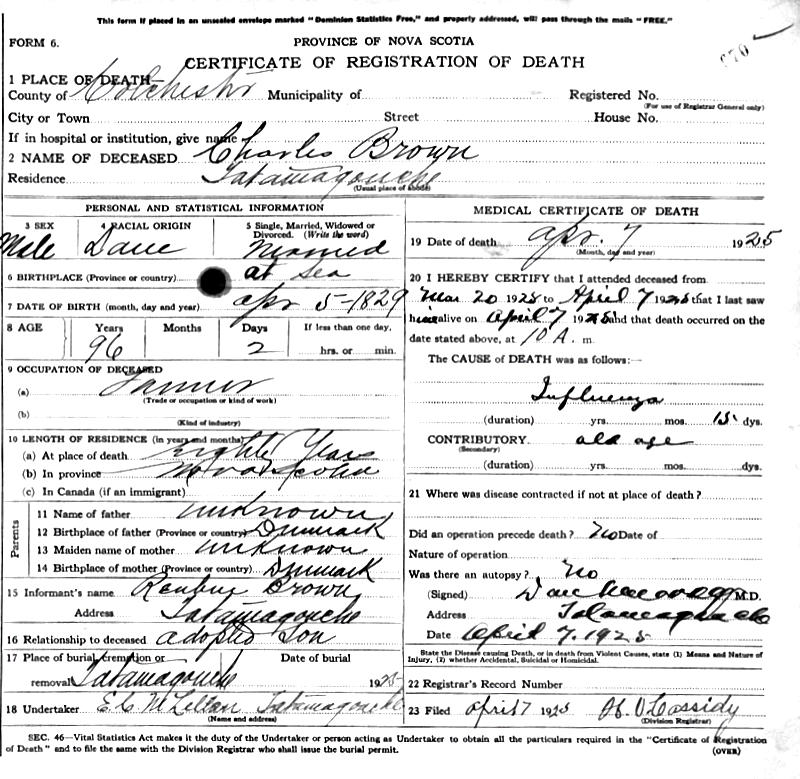 This form if placed in an unsealed envelope marked "Dominion Statistics Free," and properly addressed, will pass through the mails "FREE."
FORM 6. PROVINCE OF NOVA SCOTIA
CERTIFICATE OF REGISTRATION OF DEATH
1 PLACE OF DEATH
County of Colchester Municipality of Registered No.
(For use of Registrar General only)
City or Town Street House No.
If in hospital or institution, give name
2 NAME OF DECEASED Charles Brown
Residence Tatamagouche
(Usual place of abode)
PERSONAL AND STATISTICAL INFORMATION
3 SEX 4 RACIAL ORIGIN 5 Single, Married, Widowed or Divorced. (Write the word)
Male Dane Married
6 BIRTHPLACE (Province or country) at Sea
7 DATE OF BIRTH (month, day and year) Apr 5-1829
8 AGE Years Months Days If less than one day,
96 2 hrs. or min.
9 OCCUPATION OF DECEASED
(a) Farmer
(Trade or occupation or kind of work)
(b)
(Kind of industry)
10 LENGTH OF RESIDENCE (in years and months)
(a) At place of death Eighty Years
(b) In province Nova Scotia
(c) In Canada (if an immigrant)
Parents
11 Name of father unknown
12 Birthplace of father (Province or country) Denmark
13 Maiden name of mother unknown
14 Birthplace of mother (Province or country) Denmark
15 Informant's name Reuben Brown
Address Tatamagouche
16 Relationship to deceased adopted Son
17 Place of burial, cremation or Date of burial
removal Tatamagouche 1925
18 Undertaker E. C. McLellan Tatamagouche
(Name and address)
MEDICAL CERTIFICATE OF DEATH
19 Date of death Apr. 7 1925
(Month, day and year)
20 I HEREBY CERTIFY that I attended deceased from
Mar 20 1925 to April 7 1925 that I last saw
him alive on April 7 1925 and that death occurred on the
date stated above, at 10 A. m.
The CAUSE of DEATH was as follows:—
Influenza
(duration) yrs. mos. 15 dys.
CONTRIBUTORY. old age
(Secondary)
(duration) yrs. mos. dys.
21 Where was disease contracted if not at place of death?
Did an operation precede death? No Date of
Nature of operation
Was there an autopsy? No
(Signed) Dan M.D.
Address Tatamagouche
Date April 7. 1925
State the Disease causing Death, or in death from Violent Causes, state (1) Means and Nature of
Injury, (2) whether Accidental, Suicidal or Homicidal.
22 Registrar's Record Number
23 Filed April 7 1925 Cassidy
(Division Registrar)
SEC. 46—Vital Statistics Act makes it the duty of the Undertaker or person acting as Undertaker to obtain all the particulars required in the "Certificate of Registration
of Death" and to file the same with the Division Registrar who shall issue the burial permit. (OVER)